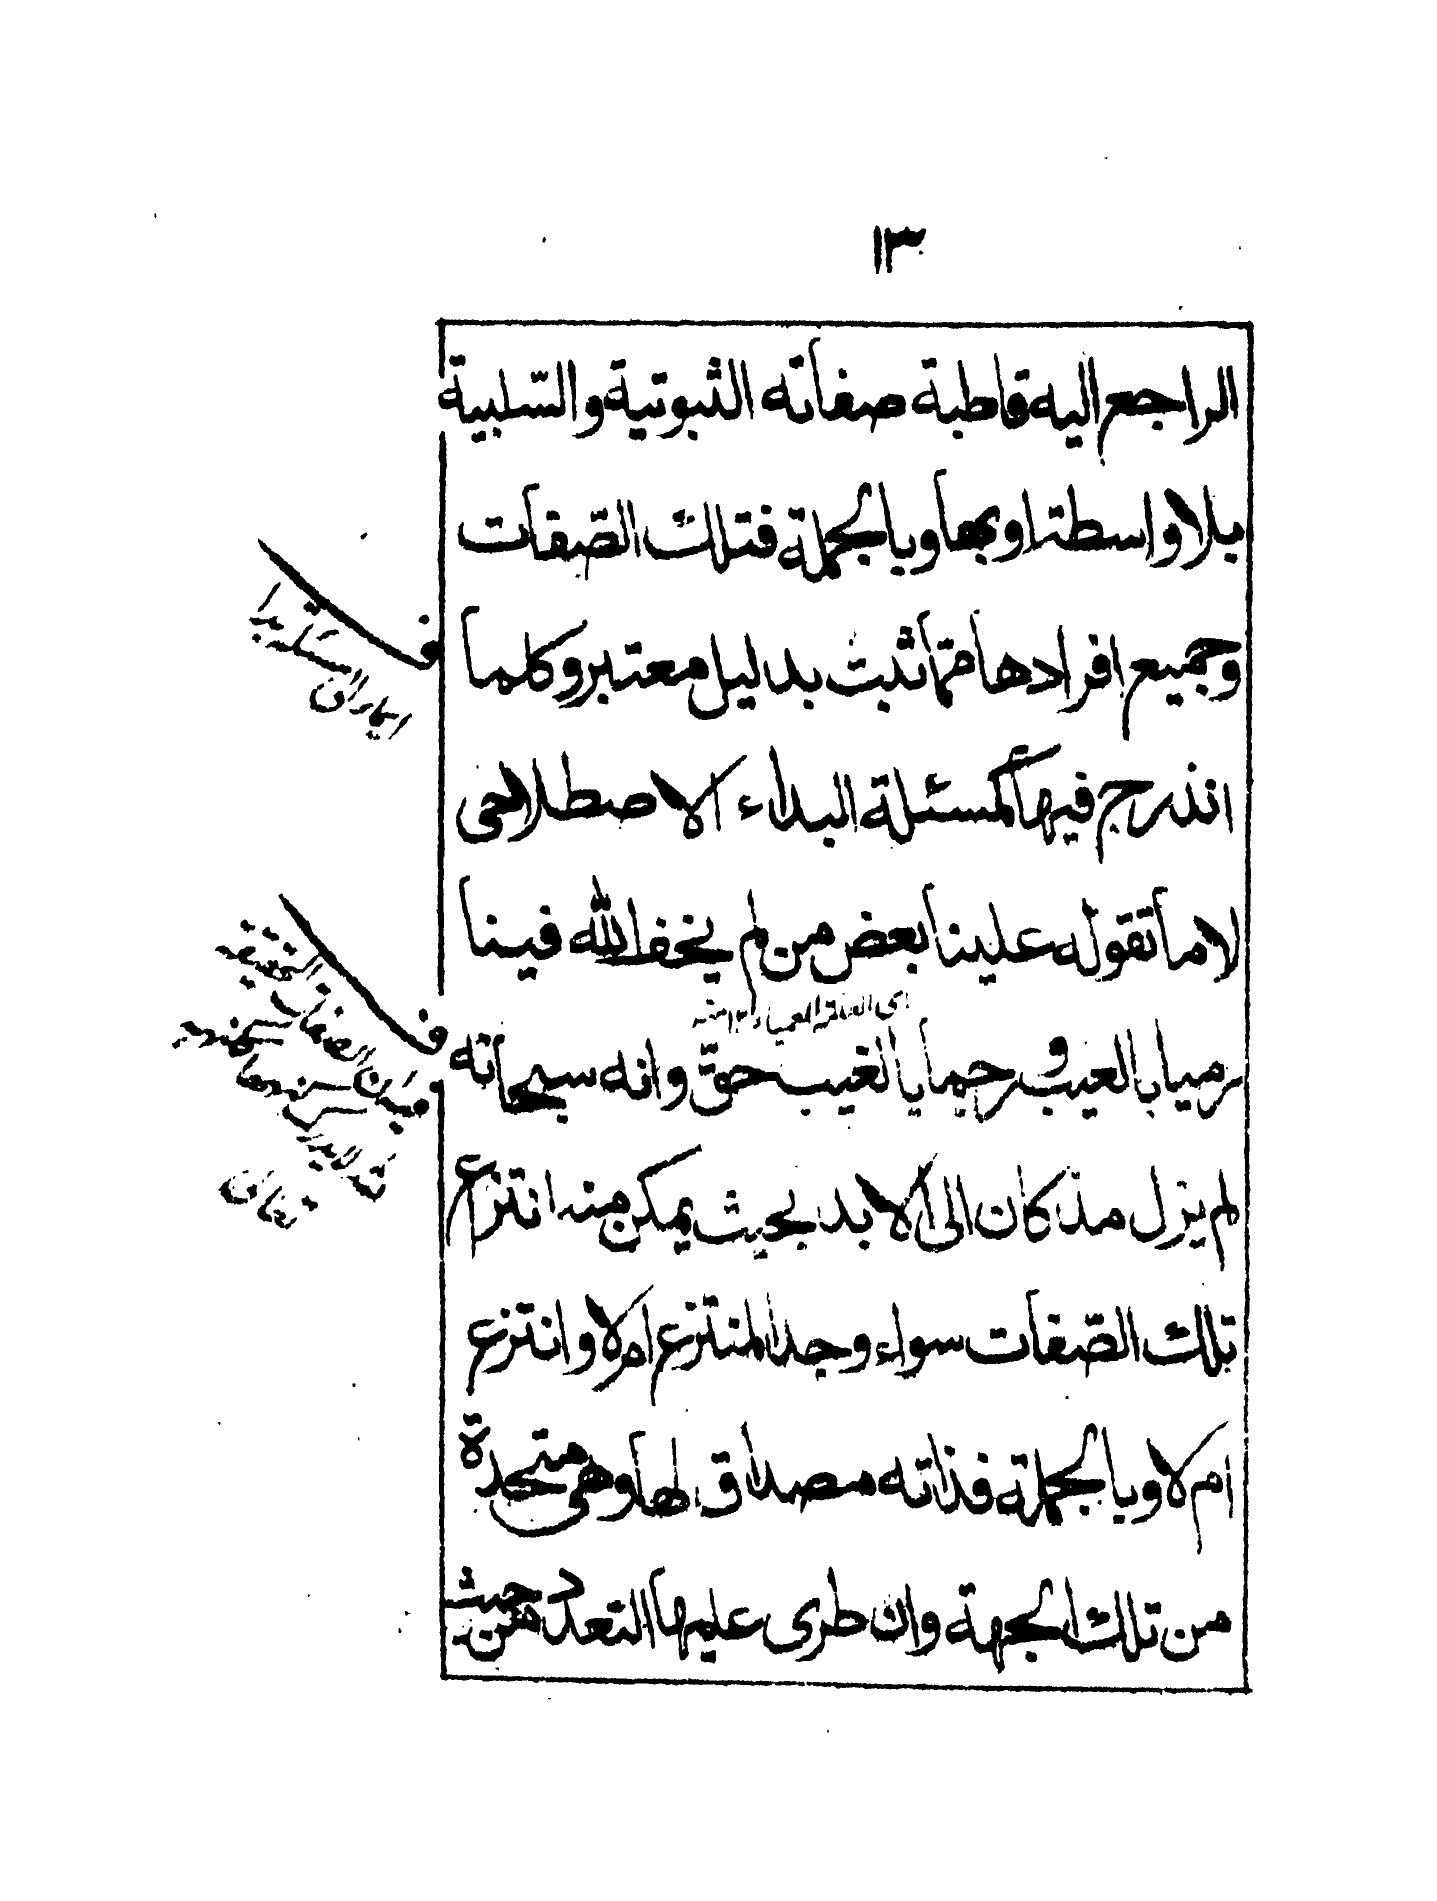 ١٣
الراجع اليه قاطبة صفاته الثبوتية والسّلبية
بلا واسطة او بها وبالجملة فتلك الصّفات
وجميع افرادها ممّا ثبت بدليل معتبر وكلما
اندرج فيها كمسئلة البداء الاصطلاحى
لا ما تقوله علينا بعض من لم يخف الله فينا
رميا بالعيب ورجما بالغيب حقّ وانه سبحانه
لم يزل مذ كان الى الابد بحيث يمكن منه انتزاع
تلك الصّفات سواء وجد المنتزع ام لا وانتزع
ام لا وبالجملة فذاته مصداق لها وهى متحدة
من تلك الجهة وان طرى عليها التعدد من حيث
ف
ايما الى مسئلة بدا
ف
الصفات الحقيقية
تعالى